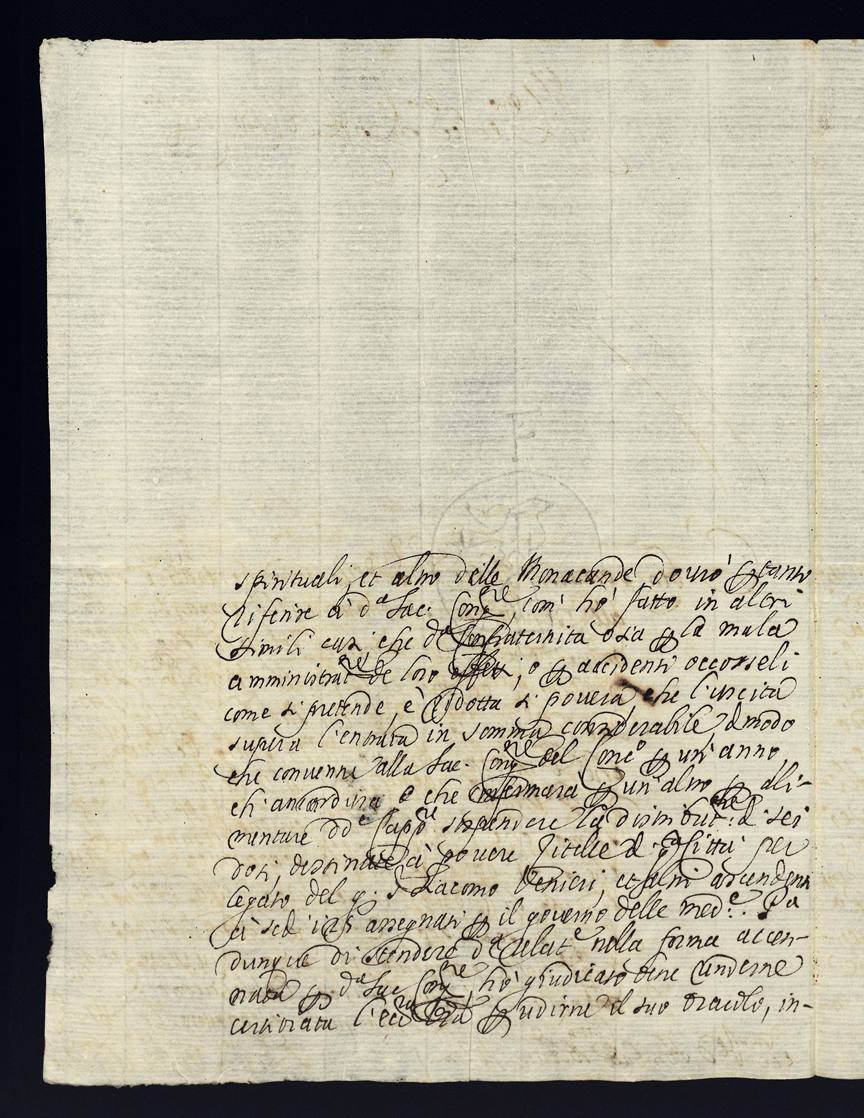 spirituali, et altro delle Monacande dourò per tanto
riferire à d.ª Sac. Cong.ne com' hò fatto in altri
simili casi, che d.ª Confraternita ò sia per la mala
amministrat.ne de loro effetti, ò per accidenti occorseli
come si pretende, è ridotta si pouera, che l'uscita
supera l'entrata in somma considerabile, di modo
che conuenne alla Sac. Cong.ne del Conc.º per un' anno,
ch' ancor dura e che confermarà per un altro per ali-
mentare dd.e sospendere la distribut.ne di sei
doti, destinate à pouere Zitelle di q.ª Città per
legato del q. Giacomo Venieri, et altri ascendenti
à sc.di 125 assegnati per il gouerno delle med.e.
dunque distendere d.ª nella forma accen-
nata per d.ª Sac. Cong.ne, hò giudicato bene renderne
certiorata l'ecc. V.ra per udirne il suo oracolo, in-